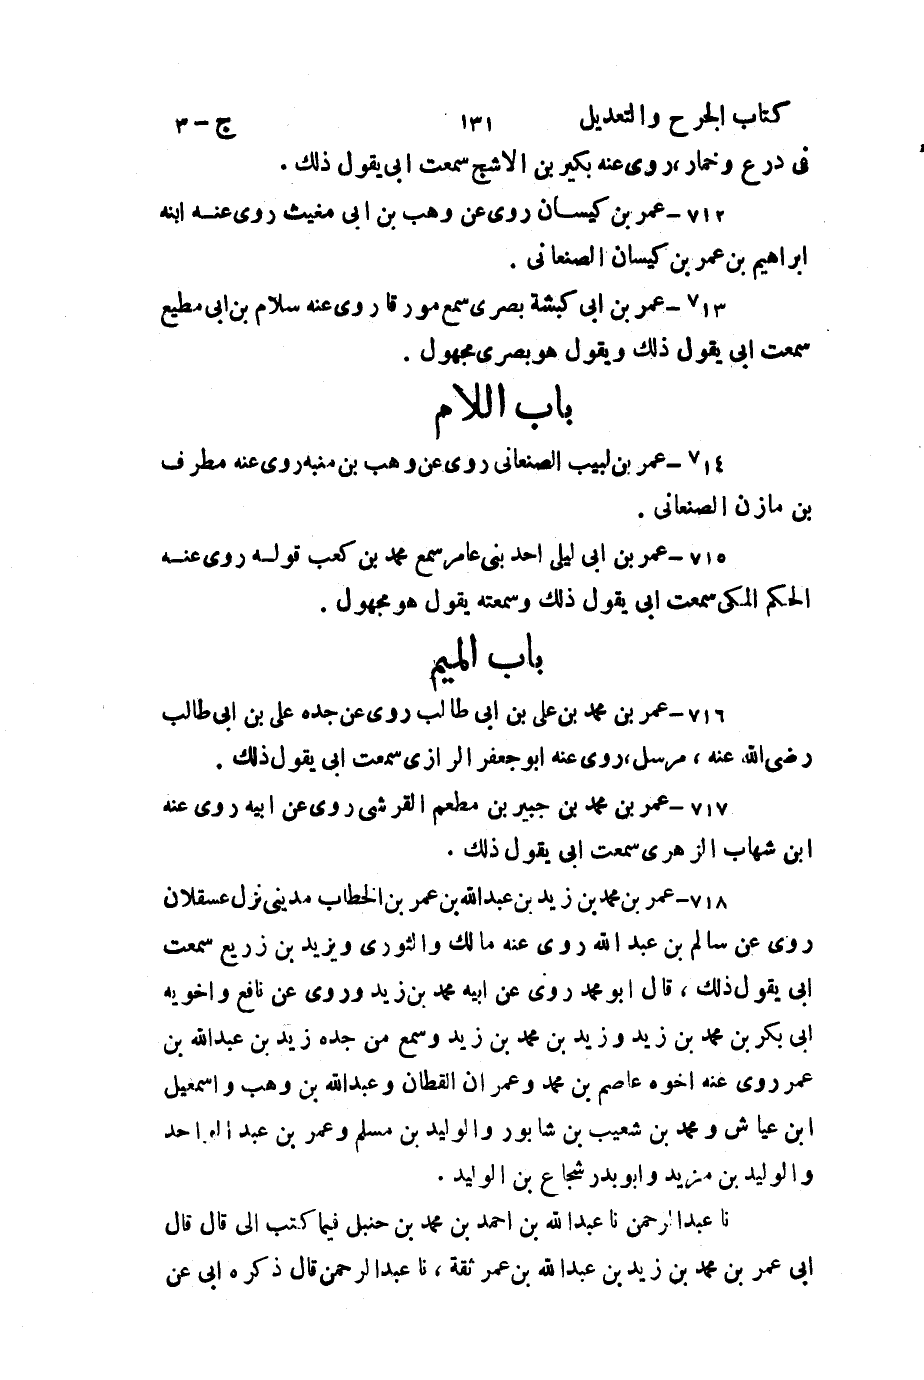 كتاب الجرح والتعديل ١٣١ ج – ٣
فى درع وخمار، روى عنه بكير بن الاشج سمعت ابى يقول ذلك .
٧١٢ – عمر بن كيسان روى عن وهب بن ابى مغيث روى عنه ابنه
ابراهيم بن عمر بن كيسان الصنعانى .
٧١٣ – عمر بن ابى كبشة بصرى سمع مورقا روى عنه سلام بن ابى مطيع
سمعت ابى يقول ذلك ويقول هو بصرى مجهول .
باب اللام
٧١٤ – عمر بن لبيب الصنعانى روى عن وهب بن منبه روى عنه مطرف
بن مازن الصنعانى .
٧١٥ – عمر بن ابى ليلى احد بنى عامر سمع محمد بن كعب قوله روى عنه
الحكم المكى سمعت ابى يقول ذلك وسمعته يقول هو مجهول .
باب الميم
٧١٦ – عمر بن محمد بن على بن ابى طالب روى عن جده على بن ابى طالب
رضى الله عنه ، مرسل، روى عنه ابو جعفر الرازى سمعت ابى يقول ذلك .
٧١٧ – عمر بن محمد بن جبير بن مطعم القرشى روى عن ابيه روى عنه
ابن شهاب الزهرى سمعت ابى يقول ذلك .
٧١٨ – عمر بن محمد بن زيد بن عبد الله بن عمر بن الخطاب مدينى نزل عسقلان
روى عن سالم بن عبد الله روى عنه مالك والثورى ويزيد بن زريع سمعت
ابى يقول ذلك ، قال ابو محمد روى عن ابيه محمد بن زيد وروى عن نافع واخويه
ابى بكر بن محمد بن زيد وزيد بن محمد بن زيد وسمع من جده زيد بن عبد الله بن
عمر روى عنه اخوه عاصم بن محمد وعمران القطان وعبد الله بن وهب واسمعيل
ابن عياش ومحمد بن شعيب بن شابور والوليد بن مسلم وعمر بن عبد الواحد
والوليد بن مزيد وابو بدر شجاع بن الوليد .
نا عبد الرحمن نا عبد الله بن احمد بن محمد بن حنبل فيما كتب الى قال قال
ابى عمر بن محمد بن زيد بن عبد الله بن عمر ثقة ، نا عبد الرحمن قال ذكره ابى عن